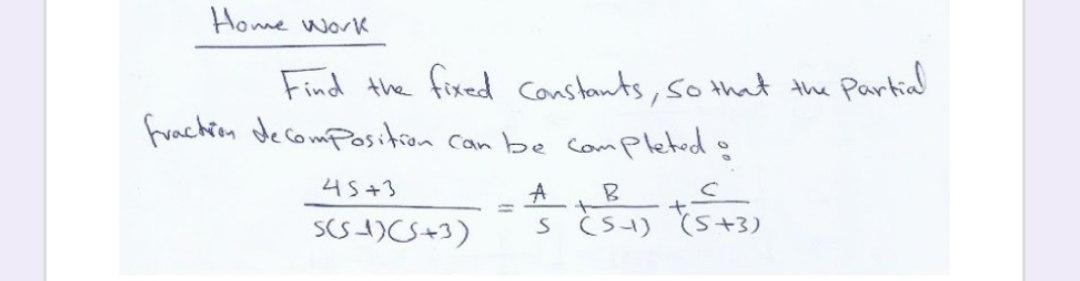 Home Work
Find the fixed constants, so that the Partial
fraction decomposition can be completed:
4S+3 / S(S-1)(S+3) = A/S + B/(S-1) + C/(S+3)